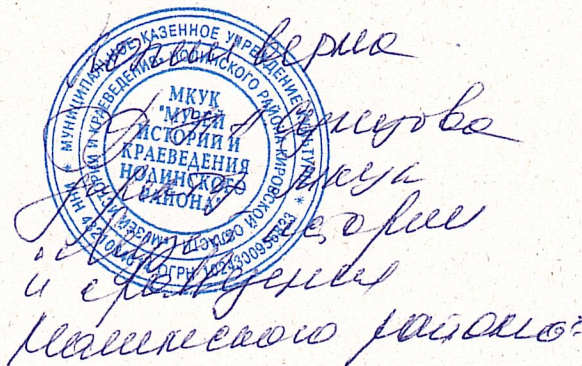 Копия верна
МУНИЦИПАЛЬНОЕ КАЗЕННОЕ УЧРЕЖДЕНИЕ КУЛЬТУРЫ
МУЗЕЙ ИСТОРИИ И КРАЕВЕДЕНИЯ НОЛИНСКОГО РАЙОНА КИРОВСКОЙ ОБЛАСТИ
ОГРН 1024300956883
МКУК
"МУЗЕЙ
ИСТОРИИ И
КРАЕВЕДЕНИЯ
НОЛИНСКОГО
РАЙОНА"
МКУК
истории
и краеведения
Нолинского района"